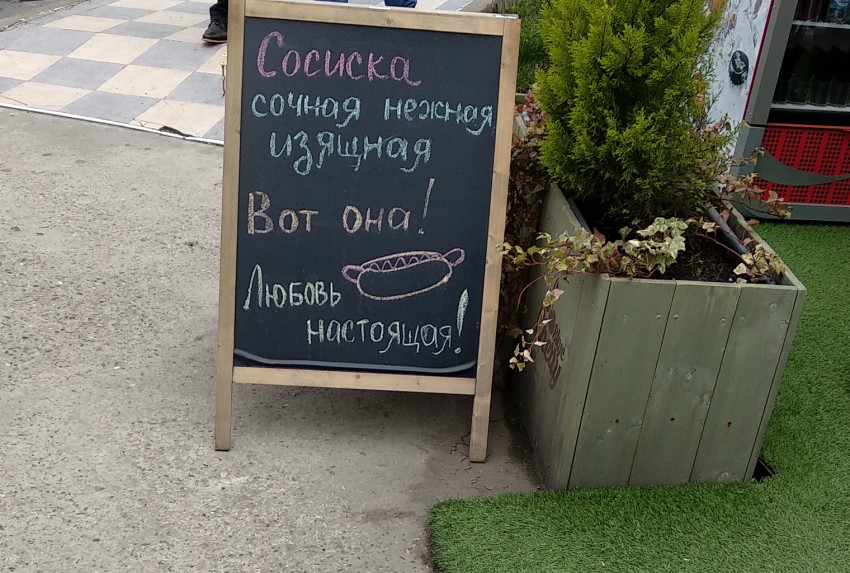 Сосиска
сочная нежная
изящная
Вот она!
Любовь
настоящая!